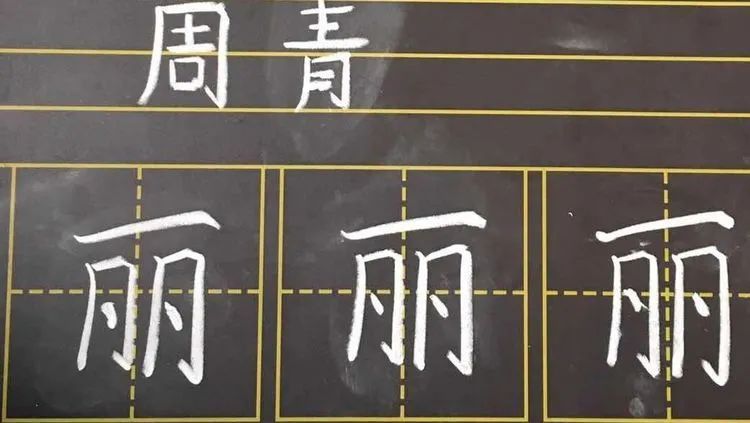 周青
丽丽丽